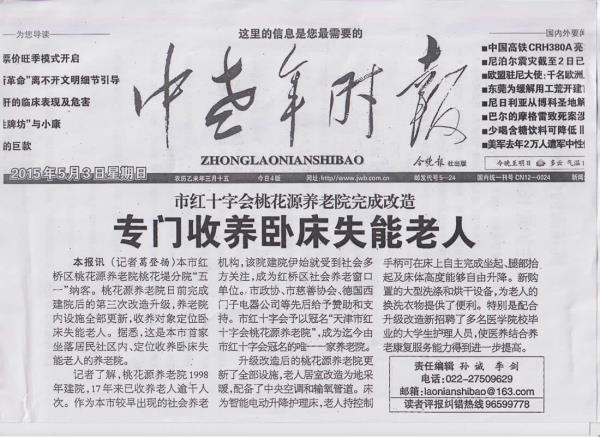 为您导读
票价旺季模式开启
革命"离不开文明细节引导
肝的临床表现及危害
牌坊"与小康
的巨款
这里的信息是您最需要的
中老年时报
ZHONGLAONIANSHIBAO
今晚报 社出版
国内外要闻
■中国高铁CRH380A亮
■尼泊尔震灾截至2日已
■欧盟驻尼大使:千名欧洲
■东莞为缓解用工荒开建
■尼日利亚从博科圣地解
■巴尔的摩格雷致死案涉
■少喝含糖饮料可降低Ⅱ
■美军去年2万人遭军中性
今晚至明日 多云 气温
2015年5月3日星期日
农历乙未年三月十五
今日4版
网址:http://www.jwb.com.cn
邮发代号5-24
国内统一刊号CN12-0024
新闻
市红十字会桃花源养老院完成改造
专门收养卧床失能老人
本报讯(记者葛登扬)本市红
桥区桃花源养老院桃花堤分院"五
一"纳客。桃花源养老院日前完成
建院后的第三次改造升级,养老院
内设施全部更新,收养对象定位卧
床失能老人。据悉,这是本市首家
坐落居民社区内、定位收养卧床失
能老人的养老院。
记者了解,桃花源养老院1998
年建院,17年来已收养老人逾千人
次。作为本市较早出现的社会养老
机构,该院建院伊始就受到社会多
方关注,成为红桥区社会养老窗口
单位。市政协、市慈善协会、德国西
门子电器公司等先后给予赞助和支
持。市红十字会予以冠名"天津市红
十字会桃花源养老院",成为迄今由
市红十字会冠名的唯一一家养老院。
升级改造后的桃花源养老院更
新了全部设施,老人居室改造为地采
暖,配备了中央空调和输氧管道。床
为智能电动升降护理床,老人持控制
手柄可在床上自主完成坐起、腿部抬
起及床体高度能够自由升降。新购
置的大型洗涤和烘干设备,为老人的
换洗衣物提供了便利。特别是配合
升级改造新招聘了多名医学院校毕
业的大学生护理人员,使医养结合养
老康复服务能力得到进一步提高。
责任编辑 孙 诚 李 剑
电话:022-27509629
邮箱:laonianshibao@163.com
读者评报纠错热线96599778